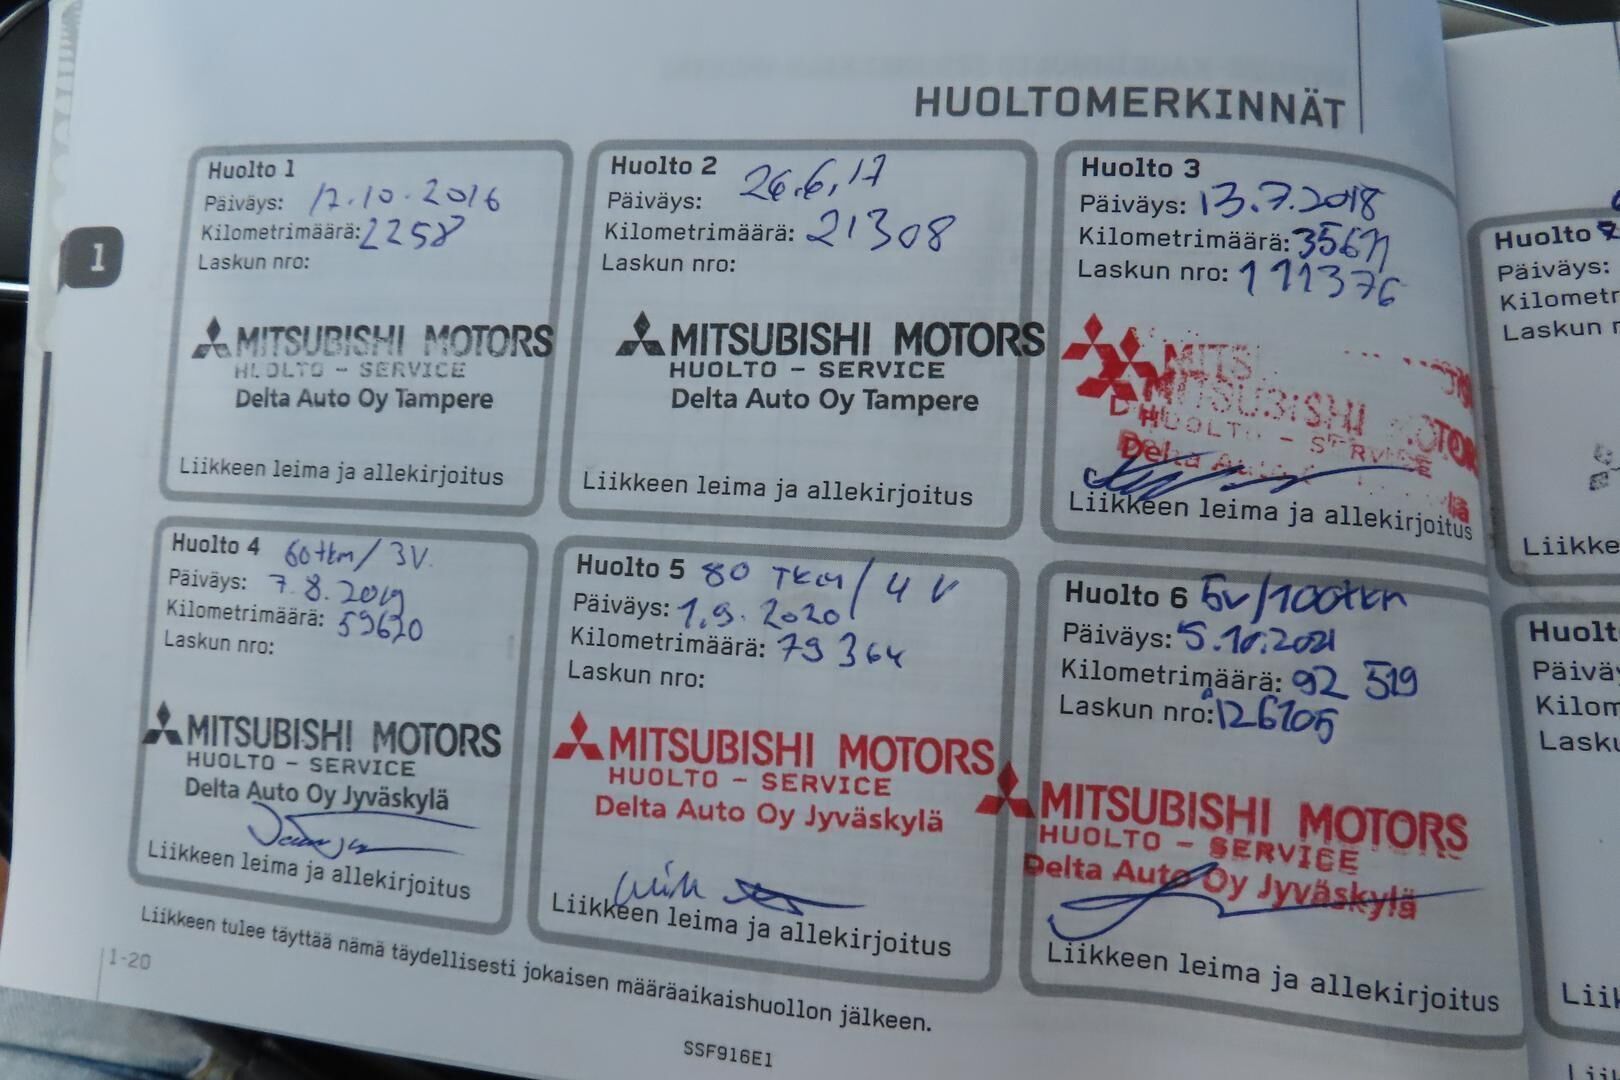 HUOLTOMERKINNÄT
1
Huolto 1
Päiväys: 17.10.2016
Kilometrimäärä: 2258
Laskun nro:
MITSUBISHI MOTORS
HUOLTO - SERVICE
Delta Auto Oy Tampere
Liikkeen leima ja allekirjoitus
Huolto 2
Päiväys: 26.6.17
Kilometrimäärä: 21308
Laskun nro:
MITSUBISHI MOTORS
HUOLTO - SERVICE
Delta Auto Oy Tampere
Liikkeen leima ja allekirjoitus
Huolto 3
Päiväys: 13.7.2018
Kilometrimäärä:
Laskun nro: 111376
MITSUBISHI MOTORS
HUOLTO - SERVICE
Delta
Liikkeen leima ja allekirjoitus
Huolto 4 60tkm/3V.
Päiväys: 7.8.2019
Kilometrimäärä: 59620
Laskun nro:
MITSUBISHI MOTORS
HUOLTO - SERVICE
Delta Auto Oy Jyväskylä
Liikkeen leima ja allekirjoitus
Huolto 5 80 TKm/4 V
Päiväys: 1.9.2020
Kilometrimäärä: 79364
Laskun nro:
MITSUBISHI MOTORS
HUOLTO - SERVICE
Delta Auto Oy Jyväskylä
Liikkeen leima ja allekirjoitus
Huolto 6 5v/100tkm
Päiväys: 5.10.2021
Kilometrimäärä: 92 519
Laskun nro: 126705
MITSUBISHI MOTORS
HUOLTO - SERVICE
Delta Auto Oy Jyväskylä
Liikkeen leima ja allekirjoitus
Liikkeen tulee täyttää nämä täydellisesti jokaisen määräaikaishuollon jälkeen.
1-20
SSF916E1
Huolto
Päiväys:
Kilometr
Laskun
Liikke
Huolt
Päiväy
Kilom
Lasku
Liik